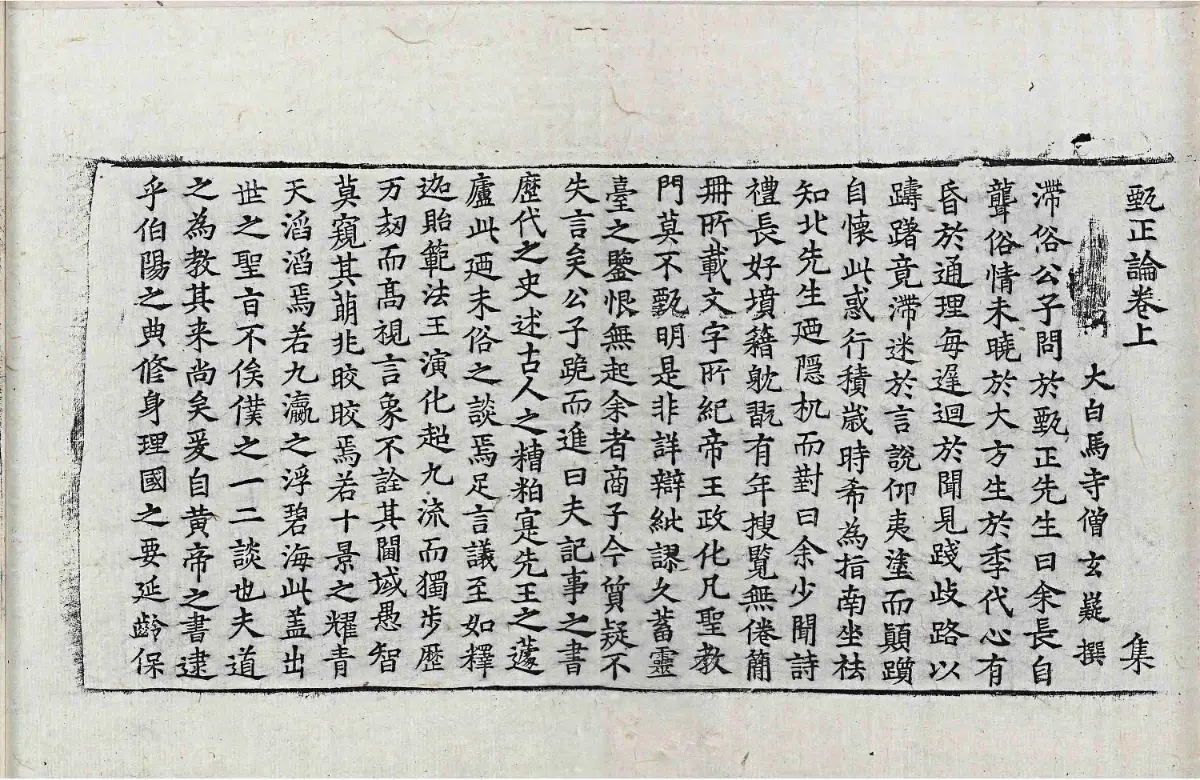 甄正論卷上 集
大白馬寺僧玄嶷撰
滯俗公子問於甄正先生曰余長自
聾俗情未曉於大方生於季代心有
昏於通理每遲迴於聞見踐歧路以
躊躇竟滯迷於言說仰夷塗而顛躓
自懷此惑行積歲時希為指南坐袪
知北先生迺隱机而對曰余少聞詩
禮長好墳籍躭翫有年搜覽無倦簡
冊所載文字所紀帝王政化凡聖教
門莫不甄明是非詳辯紕謬久蓄靈
臺之鑒恨無起余者商子今質疑不
失言矣公子跪而進曰夫記事之書
歷代之史述古人之糟粕寔先王之蘧
廬此迺末俗之談焉足言議至如釋
迦貽範法王演化超九流而獨步歷
万劫而高視言象不詮其閫域愚智
莫窺其萌兆晈晈焉若十景之耀青
天滔滔焉若九瀛之浮碧海此盖出
世之聖旨不俟僕之一二談也夫道
之為教其来尚矣爰自黃帝之書逮
乎伯陽之典修身理國之要延齡保